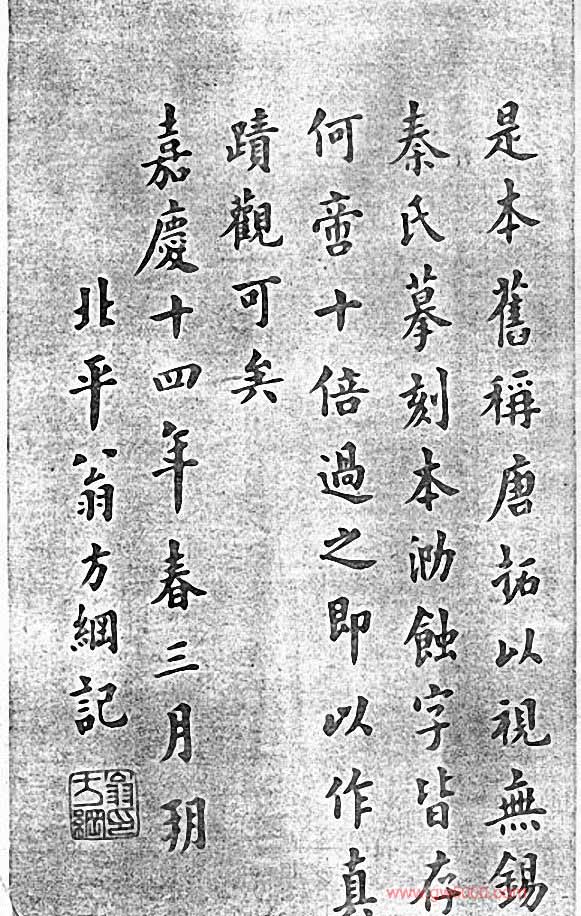 是本舊稱唐拓以視無錫
秦氏摹刻本泐蝕字皆存
何啻十倍過之即以作真
蹟觀可矣
嘉慶十四年春三月朔
北平翁方綱記
翁印方綱